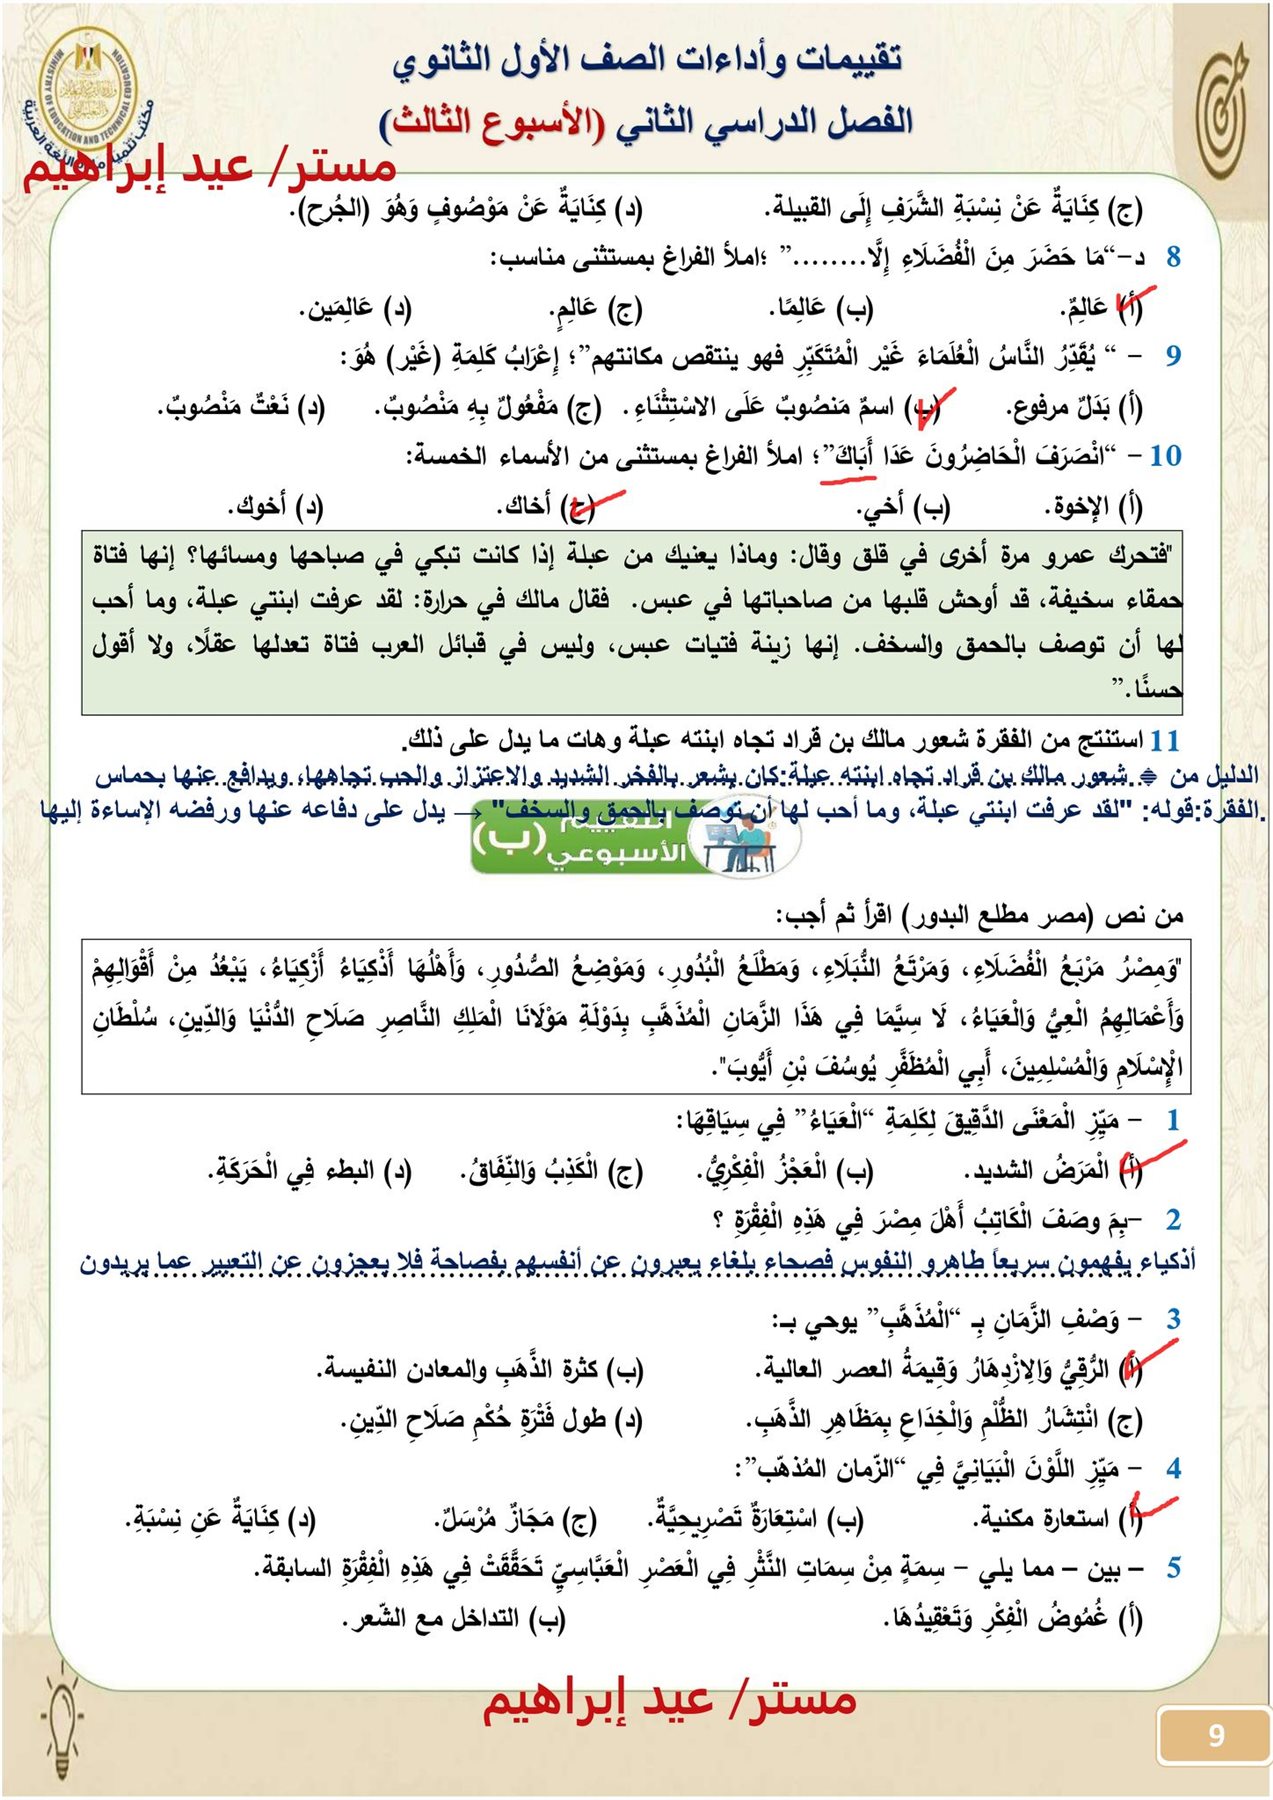 تقييمات وأداءات الصف الأول الثانوي
الفصل الدراسي الثاني (الأسبوع الثالث)
MINISTRY OF EDUCATION AND TECHNICAL EDUCATION
مستر/ عيد إبراهيم
(ج) كِنَايَةٌ عَنْ نِسْبَةِ الشَّرَفِ إِلَى القبيلة. (د) كِنَايَةٌ عَنْ مَوْصُوفٍ وَهُوَ (الجُرح).
8 د-“مَا حَضَرَ مِنَ الْفُضَلَاءِ إِلَّا........” ؛املأ الفراغ بمستثنى مناسب:
(أ) عَالِمٌ. (ب) عَالِمًا. (ج) عَالِمٍ. (د) عَالِمَين.
9 - “ يُقَدِّرُ النَّاسُ الْعُلَمَاءَ غَيْر الْمُتَكَبِّرِ فهو ينتقص مكانتهم”؛ إِعْرَابُ كَلِمَةِ (غَيْر) هُوَ:
(أ) بَدَلٌ مرفوع. (ب) اسمٌ مَنصُوبٌ عَلَى الاسْتِثْنَاءِ. (ج) مَفْعُولٌ بِهِ مَنْصُوبٌ. (د) نَعْتٌ مَنْصُوبٌ.
10 - “انْصَرَفَ الْحَاضِرُونَ عَدَا أَبَاكَ”؛ املأ الفراغ بمستثنى من الأسماء الخمسة:
(أ) الإخوة. (ب) أخي. (ج) أخاك. (د) أخوك.
"فتحرك عمرو مرة أخرى في قلق وقال: وماذا يعنيك من عبلة إذا كانت تبكي في صباحها ومسائها؟ إنها فتاة
حمقاء سخيفة، قد أوحش قلبها من صاحباتها في عبس. فقال مالك في حرارة: لقد عرفت ابنتي عبلة، وما أحب
لها أن توصف بالحمق والسخف. إنها زينة فتيات عبس، وليس في قبائل العرب فتاة تعدلها عقلًا، ولا أقول
حسنًا.”
11 استنتج من الفقرة شعور مالك بن قراد تجاه ابنته عبلة وهات ما يدل على ذلك.
شعور مالك بن قراد تجاه ابنته عبلة:كان يشعر بالفخر الشديد والاعتزاز والحب تجاهها، ويدافع عنها بحماس. الدليل من
الفقرة:قوله: "لقد عرفت ابنتي عبلة، وما أحب لها أن توصف بالحمق والسخف" → يدل على دفاعه عنها ورفضه الإساءة إليها.
التقييم
الأسبوعي (ب)
من نص (مصر مطلع البدور) اقرأ ثم أجب:
"وَمِصْرُ مَرْبَعُ الْفُضَلَاءِ، وَمَرْتَعُ النُّبَلَاءِ، وَمَطْلَعُ الْبُدُورِ، وَمَوْضِعُ الصُّدُورِ، وَأَهْلُهَا أَذْكِيَاءُ أَزْكِيَاءُ، يَبْعُدُ مِنْ أَقْوَالِهِمْ
وَأَعْمَالِهِمُ الْعِيُّ وَالْعَيَاءُ، لَا سِيَّمَا فِي هَذَا الزَّمَانِ الْمُذَهَّبِ بِدَوْلَةِ مَوْلَانَا الْمَلِكِ النَّاصِرِ صَلَاحِ الدُّنْيَا وَالدِّينِ، سُلْطَانِ
الْإِسْلَامِ وَالْمُسْلِمِينَ، أَبِي الْمُظَفَّرِ يُوسُفَ بْنِ أَيُّوبَ".
1 - مَيِّزِ الْمَعْنَى الدَّقِيقَ لِكَلِمَةِ “الْعَيَاءُ” فِي سِيَاقِهَا:
(أ) الْمَرَضُ الشديد. (ب) الْعَجْزُ الْفِكْرِيُّ. (ج) الْكَذِبُ وَالنِّفَاقُ. (د) البطء فِي الْحَرَكَةِ.
2 -بِمَ وصَفَ الْكَاتِبُ أَهْلَ مِصْرَ فِي هَذِهِ الْفِقْرَةِ ؟
أذكياء يفهمون سريعاً طاهرو النفوس فصحاء بلغاء يعبرون عن أنفسهم بفصاحة فلا يعجزون عن التعبير عما يريدون
3 - وَصْفِ الزَّمَانِ بِـ “الْمُذَهَّبِ” يوحي بـ:
(أ) الرُّقِيُّ وَالِازْدِهَارُ وَقِيمَةُ العصر العالية. (ب) كثرة الذَّهَبِ والمعادن النفيسة.
(ج) انْتِشَارُ الظُّلْمِ وَالْخِدَاعِ بِمَظَاهِرِ الذَّهَبِ. (د) طول فَتْرَةِ حُكْمِ صَلَاحِ الدِّينِ.
4 - مَيِّزِ اللَّوْنَ الْبَيَانِيَّ فِي “الزّمان المُذهّب”:
(أ) استعارة مكنية. (ب) اسْتِعَارَةٌ تَصْرِيحِيَّةٌ. (ج) مَجَازٌ مُرْسَلٌ. (د) كِنَايَةٌ عَنِ نِسْبَةِ.
5 – بين – مما يلي – سِمَةٍ مِنْ سِمَاتِ النَّثْرِ فِي الْعَصْرِ الْعَبَّاسِيِّ تَحَقَّقَتْ فِي هَذِهِ الْفِقْرَةِ السابقة.
(أ) غُمُوضُ الْفِكْرِ وَتَعْقِيدُهَا. (ب) التداخل مع الشّعر.
مستر/ عيد إبراهيم
9